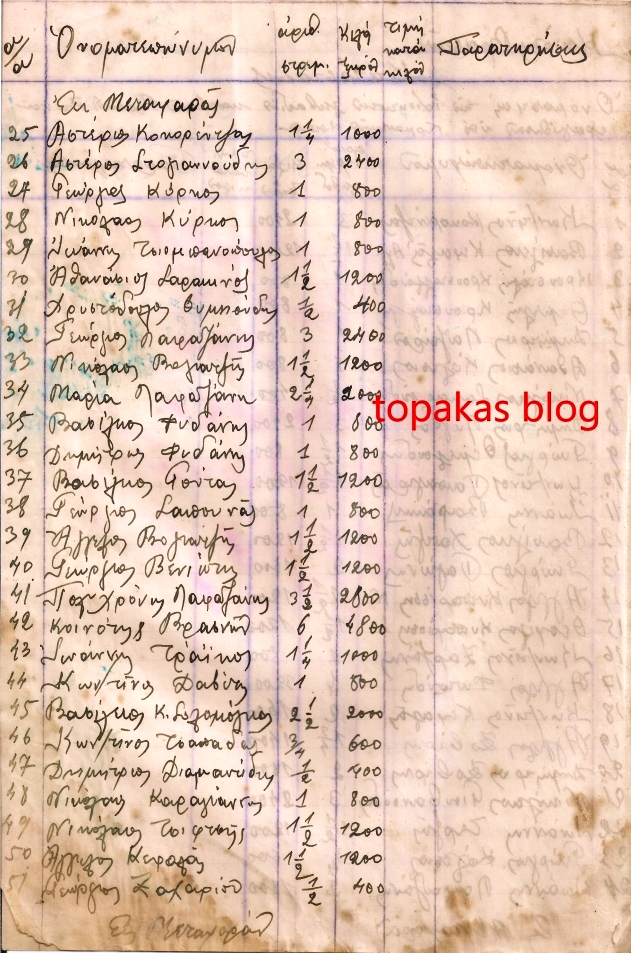 α/α Ὀνοματεπώνυμον ἀριθ. στρεμ. Κιλά ξηρόν τιμή κατά κιλόν Παρατηρήσεις
Ἐκ Μεταφορᾶς
25 Ἀστέριος 1 1/4 1000
26 Ἀστέριος Στογιαννούδης 3 2400
27 Γεώργιος Κύρκος 1 800
28 Νικόλαος Κύρκος 1 800
29 Ἰωάννης Τσιομπανόπουλος 1 800
30 Ἀθανάσιος Σαραμπής 1 1/2 1200
31 Χρυστόδουλος 1/2 400
32 Γεώργιος Παπαζάνης 3 2400
33 Νικόλαος Βογιατζῆς 1 1/2 1200
34 Μαρία Παπαζάνη 2 1/4 2000
topakas blog
35 Βασίλειος Φυδάνης 1 800
36 Δημήτριος Φυδάνης 1 800
37 Βασίλειος Γούτας 1 1/2 1200
38 Γεώργιος Σαπουνᾶς 1 800
39 Ἄγγελος Βογιατζῆς 1 1/2 1200
40 Γεώργιος Βενιώτης 1 1/2 1200
41 Πολυχρόνης Παπαζάνης 3 1/2 2800
42 Κοινότης Βρασνῶν 6 4800
43 Ἰωάννης Τράϊκος 1 1/4 1000
44 Κων/τῖνος 1 800
45 Βασίλειος Κ. 2 1/2 2000
46 Κων/τῖνος Τσαπαδᾶς 3/4 600
47 Δημήτριος Διαμανύδης 1/2 400
48 Νικόλαος Καραγιάννης 1 800
49 Νικόλαος Τσιφτσῆς 1 1/2 1200
50 Ἄγγελος Κεφαλᾶς 1 1/2 1200
51 Γεώργιος Ζαχαρίου 1/2 400
Εἰς Μεταφοράν